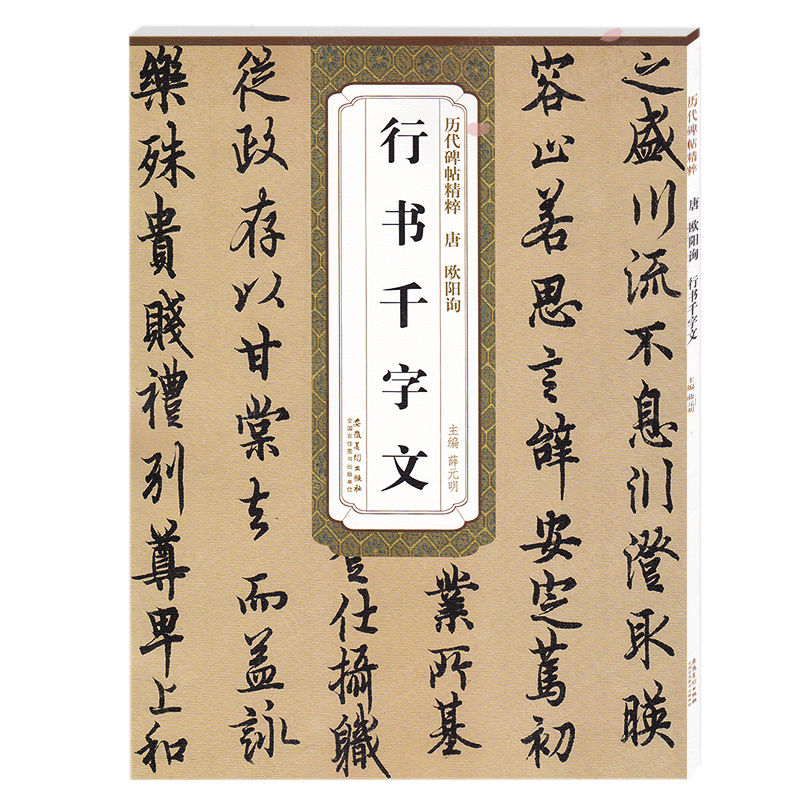 历代碑帖精粹 唐 欧阳询
行书千字文
主编 薛元明
安徽美术出版社
全国百佳图书出版单位
之盛川流不息淵澄取暎
容止若思言辭安定篤初
業所基
仕攝職
從政存以甘棠去而益詠
樂殊貴賤禮別尊卑上和
历代碑帖精粹 唐 欧阳询 行书千字文 主编 薛元明
安徽美术出版社